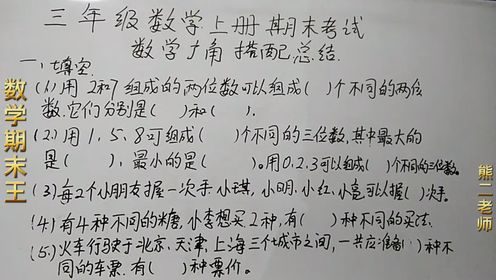 三年级数学上册期末考试
数学广角搭配总结.
一、填空.
(1)用2和7组成的两位数可以组成( )个不同的两位
数.它们分别是( )和( ).
(2)用1、5、8可组成( )个不同的三位数,其中最大的
是( ),最小的是( )。用0.2.3可以组成( )个不同的三位数。
(3)每2个小朋友握一次手,小琪,小明,小红,小亮可以握( )次手。
(4)有4种不同的糖,小李想买2种,有( )种不同的买法.
(5)火车行驶于北京、天津,上海三个城市之间,一共应准备( )种不
同的车票.有( )种票价。
数学期末王
熊二老师